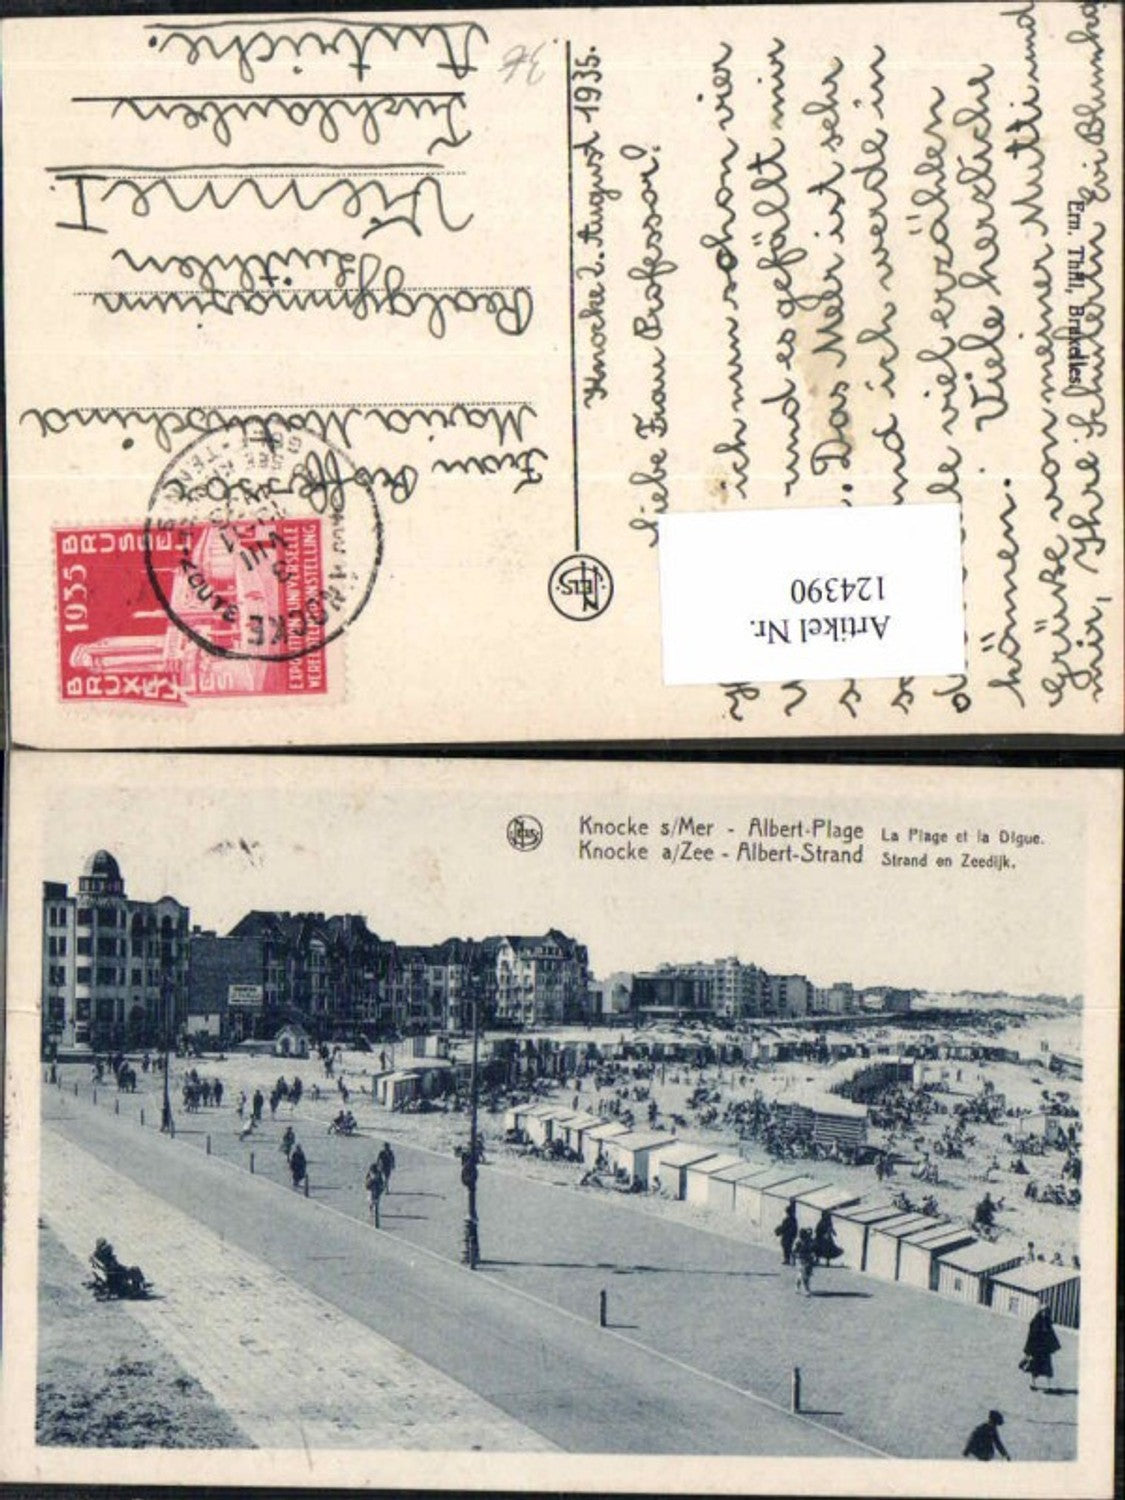 Knocke 2. August 1935.
Liebe Frau Professor!
ich nun schon vier
und es gefällt mir
Das Meer ist sehr
und ich werde in
viel erzählen
können. Viele herzliche
Grüsse von meiner Mutti und
mir, Ihre Schülerin Evi
Ern. Thill, Bruxelles
NELS
Artikel Nr.
124390
36
Frau
Maria
Realgymnasium
Vienne I.
Tuchlauben
Autriche.
1935
BRUSSEL
BRUXELLES
EXPOSITION UNIVERSELLE
WERELDTENTOONSTELLING
KNOCKE
ZOUTE
3
VIII
NELS
Knocke s/Mer - Albert-Plage La Plage et la Digue.
Knocke a/Zee - Albert-Strand Strand en Zeedijk.